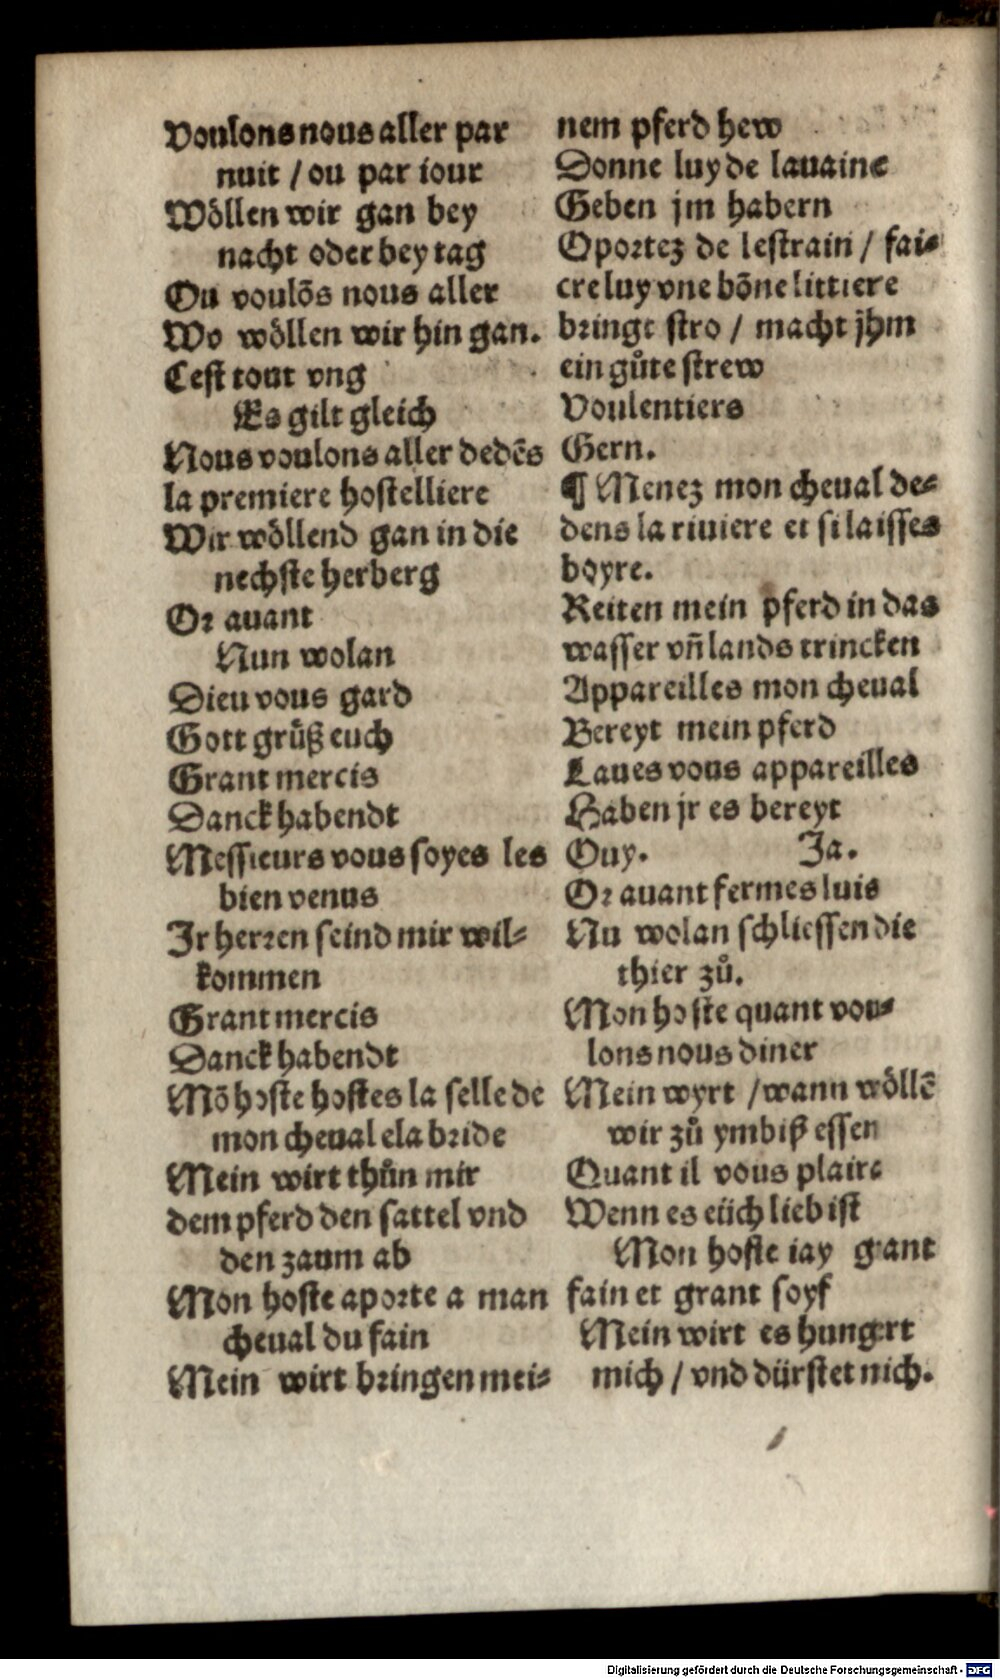 Voulons nous aller par
nuit / ou par iour
Wöllen wir gan bey
nacht oder bey tag
Ou voulōs nous aller
Wo wöllen wir hin gan.
Cest tout vng
Es gilt gleich
Nous voulons aller dedēs
la premiere hostelliere
Wir wöllend gan in die
nechste herberg
Or auant
Nun wolan
Dieu vous gard
Gott grůß euch
Grant mercis
Danck habendt
Messieurs vous soyes les
bien venus
Ir herren seind mir wil⸗
kommen
Grant mercis
Danck habendt
Mō hoste hostes la selle de
mon cheual ela bride
Mein wirt thůn mir
dem pferd den sattel vnd
den zaum ab
Mon hoste aporte a man
cheual du fain
Mein wirt bringen mei⸗
nem pferd hew
Donne luy de lauaine
Geben jm habern
Oportez de lestrain / fai⸗
cre luy vne bōne littiere
bringt stro / macht jhm
ein gůte strew
Voulentiers
Gern.
¶ Menez mon cheual de⸗
dens la riuiere et si laisses
boyre.
Reiten mein pferd in das
wasser vñ lands trincken
Appareilles mon cheual
Bereyt mein pferd
Laues vous appareilles
Haben jr es bereyt
Ouy. Ja.
Or auant fermes luis
Nu wolan schliessen die
thier zů.
Mon hoste quant vou⸗
lons nous diner
Mein wyrt / wann wöllē
wir zů ymbiß essen
Quant il vous plaire
Wenn es eüch lieb ist
Mon hoste iay grant
fain et grant soyf
Mein wirt es hungert
mich / vnd dürstet nich.
Digitalisierung gefördert durch die Deutsche Forschungsgemeinschaft - DFG